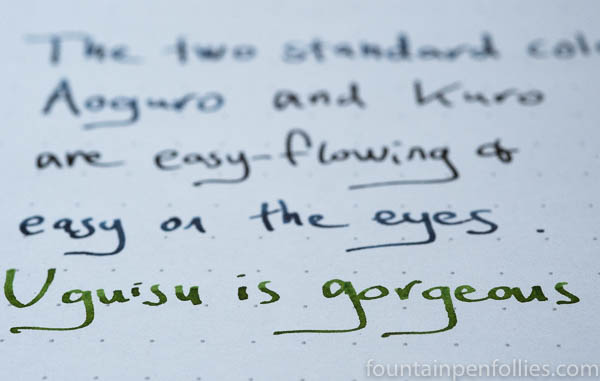 The two standard colo
Aoguro and Kuro
are easy-flowing &
easy on the eyes.
Uguisu is gorgeous
fountainpenfollies.com